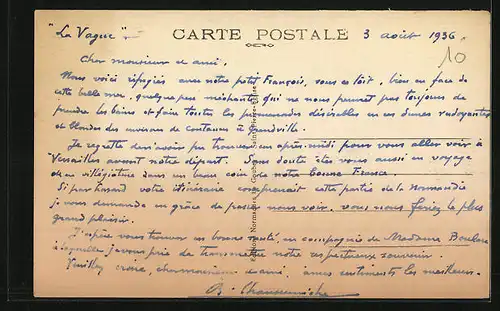 "La Vague" CARTE POSTALE 3 août 1936
10
Cher monsieur et ami.
Nous voici réfugiés avec notre petit François, sous ce toit, bien en face de
cette belle mer, quelque peu méchante qui ne nous permet pas toujours de
prendre les bains et faire toutes les promenades désirables en ces dunes
et blondes des environs de Coutances à Grandville.
Je regrette de n'avoir pu trouver un après-midi pour vous aller voir à
Versailles avant notre départ. Sans doute êtes vous aussi en voyage
ou en villégiature dans un beau coin de notre bonne France.
Si par hasard votre itinéraire comprenait cette partie de la Normandie
je vous demande en grâce de passer nous voir, vous nous feriez le plus
grand plaisir.
J'espère vous trouver en bonne santé, en compagnie de Madame
à laquelle je vous prie de transmettre notre respectueux souvenir.
Veuillez croire, cher monsieur et ami, à mes sentiments les meilleurs.